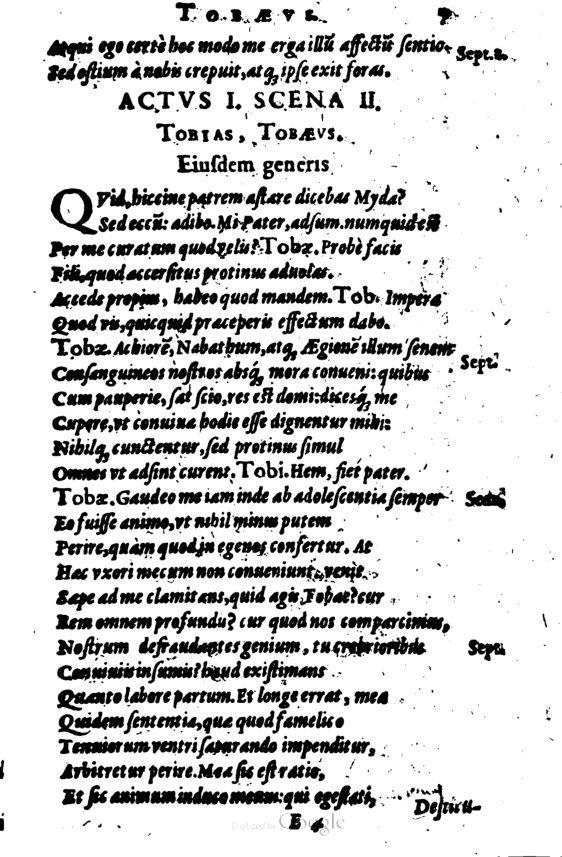 TOBÆVS. 7
Atqui ego certè hoc modo me erga illũ affectũ sentio. Sept. 8.
Sed ostium à nobis crepuit, atq; ipse exit foras.
ACTVS I. SCENA II.
TOBIAS, TOBÆVS.
Eiusdem generis
QVid, hiccine patrem astare dicebas Myda?
Sed eccũ: adibo. Mi Pater, adsum. numquid est
Per me curatum quod velis? Tobæ. Probè facis
Fili, quod accersitus protinus aduolas.
Accede propius, habeo quod mandem. Tob. Impera
Quod vis, quicquid praceperis effectum dabo.
Tobæ. Achiorẽ, Nabathum, atq; Ægionẽ illum senem Sept.
Consanguineos nostros absq; mora conueni: quibus
Cum pauperie, sat scio, res est domi: dicesq; me
Cupere, vt conuiua hodie esse dignentur mihi:
Nihilq; cunctentur, sed protinus simul
Omnes vt adsint curent. Tobi. Hem, fiet pater.
Tobæ. Gaudeo me iam inde ab adolescentia semper
Eo fuisse animo, vt nihil minus putem
Perire, quàm quod in egenos confertur. At
Hac vxori mecum non conueniunt, venit
Sæpe ad me clamitans, quid agis Tobæe? cur
Rem omnem profundis? cur quod nos comparcimus,
Nostrum defraudantes genium, tu crebrioribus Sept.
Conuiuiis insumis? haud existimans
Quanto labore partum. Et longe errat, mea
Quidem sententia, qua quod famelico
Tenuiorum ventri saturando impenditur,
Arbitretur perire. Mea sic est ratio,
Et sic animum induco meum: qui egestati,
Destitu-
E 4
Digitized by Google